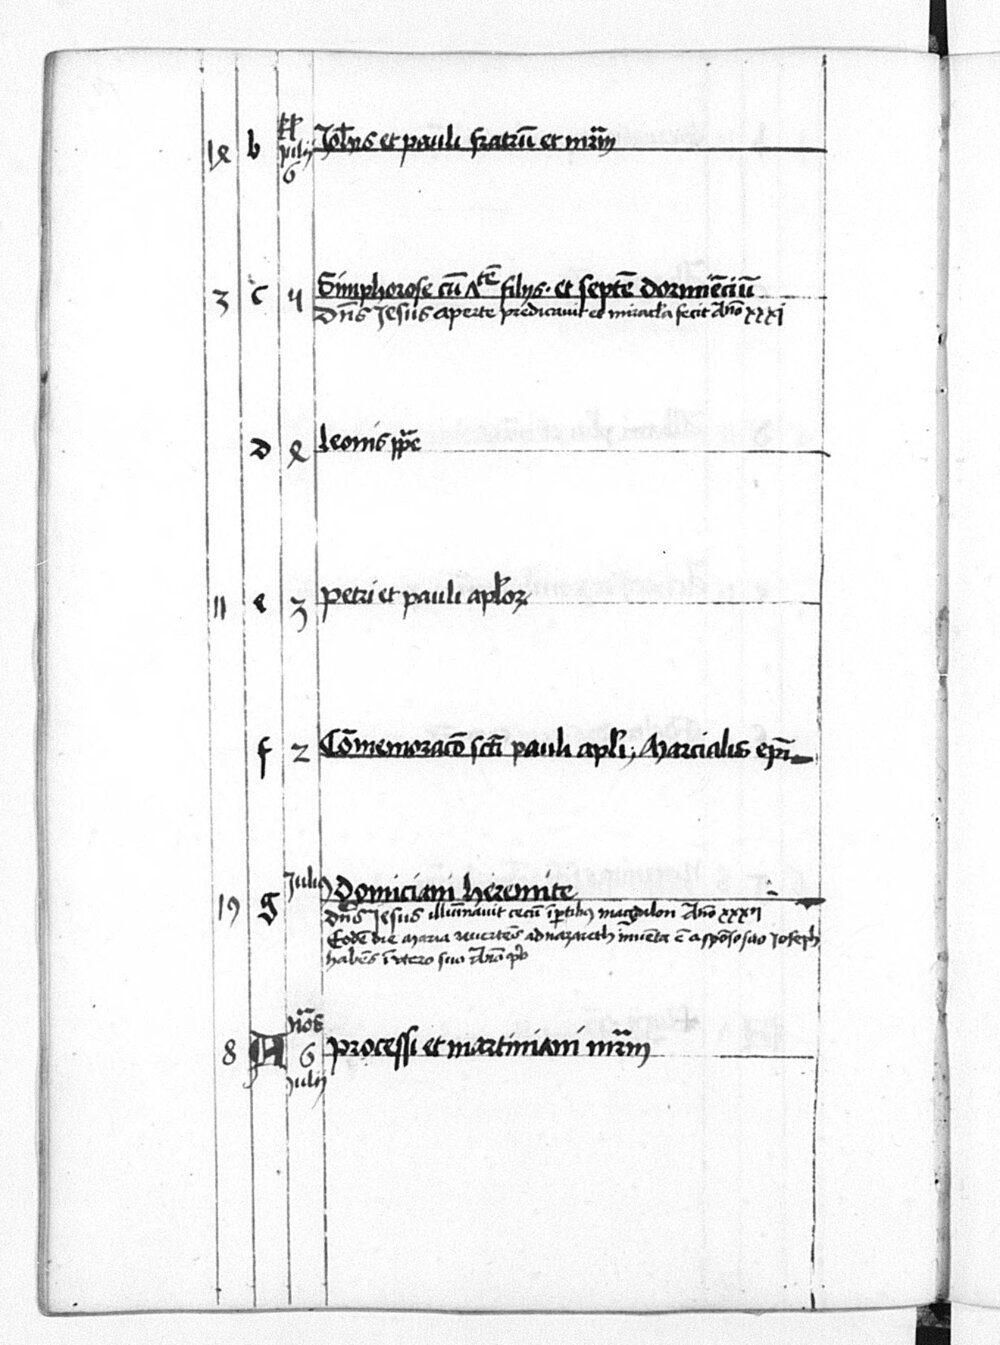 14 b kl Julij 6 Joh̄is et pauli fratrū et mr̄m
3 c 5 Simphorose cū 7tē filijs · et septē dormiēciū
Dn̄s Jesus aperte predicauit et miracła fecit Año xxxj
d 4 Leonis pp̄e
11 e 3 Petri et pauli apl̄oꝝ
f 2 Cōmemoracō sc̄ti pauli apl̄i; Marcialis ep̄i
19 g Julij Domiciani heremite
Dn̄s Jesus illuīnauit cecū ī ꝑtibꝫ magdalon Año xxxij
Eodē die maria reuertēs ad nazareth inuēta ē a spōso suo Joseph
habēs ī vtero suo Año
8 A nōs 6 Julij Processi et martiniani mr̄m